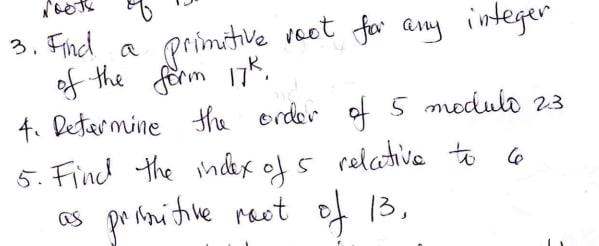 roots of
3. Find a primitive root for any integer
of the form 17ᴷ.
4. Determine the order of 5 modulo 23
5. Find the index of 5 relative to 6
as primitive root of 13,